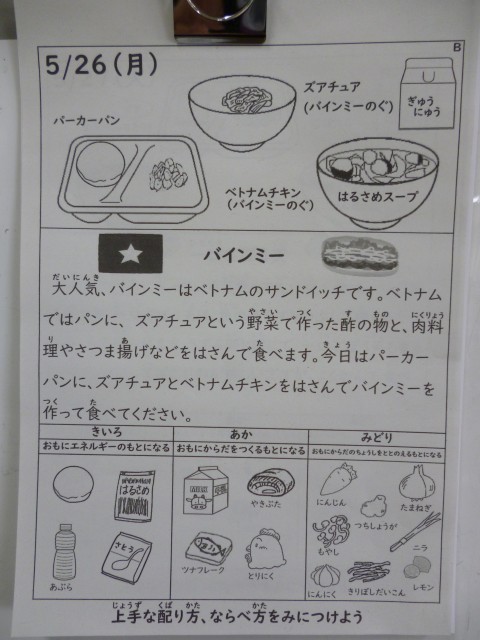 B
5/26(月)
ズアチュア
(バインミーのぐ)
ぎゅう
にゅう
パーカーパン
ベトナムチキン
(バインミーのぐ)
はるさめスープ
バインミー
だいにんき
大人気、バインミーはベトナムのサンドイッチです。ベトナム
やさい つく す もの にくりょう
ではパンに、ズアチュアという野菜で作った酢の物と、肉料
り あ た きょう
理やさつま揚げなどをはさんで食べます。今日はパーカー
パンに、ズアチュアとベトナムチキンをはさんでバインミーを
つく た
作って食べてください。
きいろ あか みどり
おもにエネルギーのもとになる おもにからだをつくるもとになる おもにからだのちょうしをととのえるもとになる
はるさめ
やきぶた
にんじん
たまねぎ
つちしょうが
もやし
さとう
ニラ
あぶら
ツナフレーク
とりにく
にんにく
きりぼしだいこん
レモン
じょうず くば かた かた
上手な配り方、ならべ方をみにつけよう